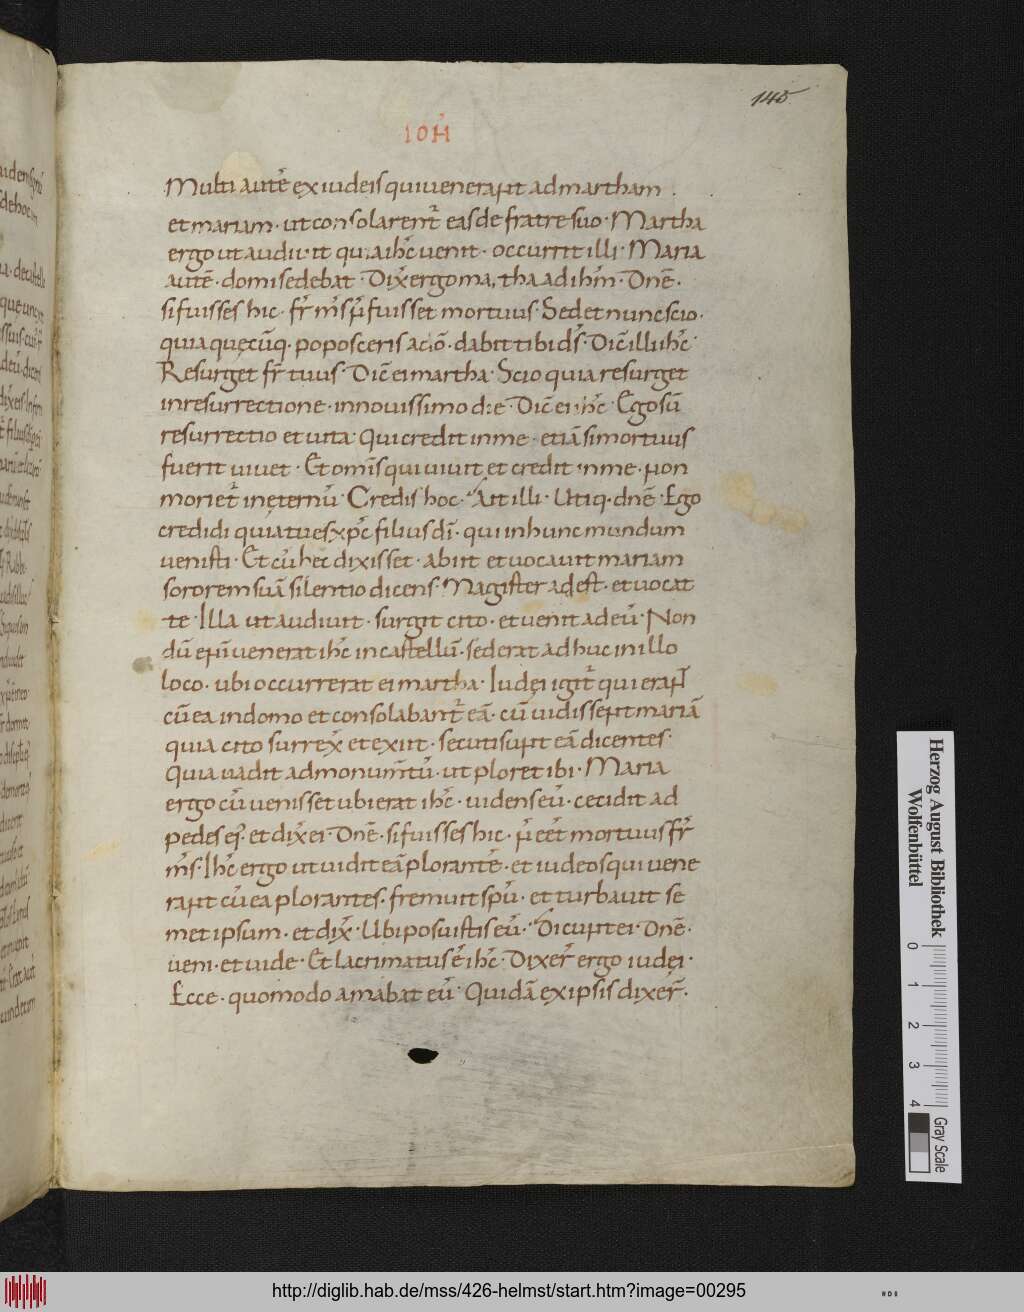 145
IOH̄
Multi autē ex iudeis qui uenerant ad martham
et mariam · ut consolarent̄ eas de fratre suo · Martha
ergo ut audiuit quia ih̄c uenit · occurrit illi · Maria
autē · domi sedebat · Dix̄ ergo martha ad ih̄m · Dn̄e ·
si fuisses hic · fr̄ m̄s n̄ fuisset mortuus · Sed et nunc scio ·
quia quęcūq · poposceris a dō · dabit tibi d̄s · Dic̄ illi ih̄c ·
Resurget fr̄ tuus · Dic̄ ei martha · Scio quia resurget
in resurrectione · in nouissimo die · Dic̄ ei ih̄c · Ego sū
resurrectio et uita · Qui credit in me · etiā si mortuus
fuerit uiuet · Et om̄is qui uiuit et credit in me · non
moriet̄ in ęternū · Credis hoc · Ait illi · Utiq · dn̄e · Ego
credidi quia tu es xp̄c filius dī · qui in hunc mundum
uenisti · Et cū hęc dixisset · abiit et uocauit mariam
sororem suā silentio dicens · Magister adest · et uocat
te · Illa ut audiuit · surgit cito · et uenit ad eū · Non
dū eni uenerat ih̄c in castellū · sed erat adhuc in illo
loco · ubi occurrerat ei martha · Iudęi igit̄ qui erant
cū ea in domo et consolabant̄ eā · cū uidissent mariā
quia cito surrex̄ et exiit · secuti sunt eā dicentes ·
Quia uadit ad monum̄tū · ut ploret ibi · Maria
ergo cū uenisset ubi erat ih̄c · uidens eū · cecidit ad
pedes ei᾽ · et dix̄ ei · Dn̄e · si fuisses hic · n̄ eēt mortuus fr̄
m̄s · Ih̄c ergo ut uidit eā plorantē · et iudeos qui uene
rant cū ea plorantes · fremuit spū · et turbauit se
met ipsum · et dix̄ · Ubi posuistis eū · Dicunt ei · Dn̄e ·
ueni · et uide · Et lacrimatus ē ih̄c · Dixer̄ ergo iudęi ·
Ecce · quomodo amabat eū · Quidā ex ipsis dixer̄ ·
Herzog August Bibliothek
Wolfenbüttel
0 1 2 3 4
Gray Scale
http://diglib.hab.de/mss/426-helmst/start.htm?image=00295